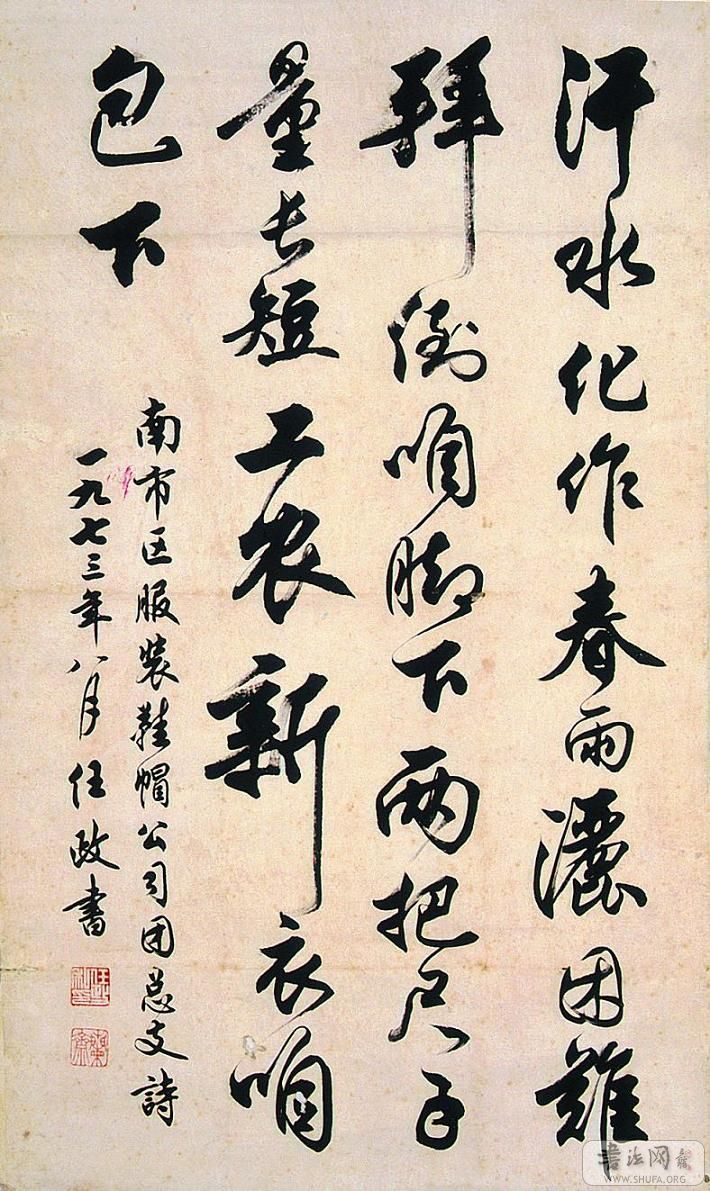 汗水化作春雨灑困難
拜倒咱脚下两把尺子
量长短工农新衣咱
包下
南市区服装鞋帽公司团总支詩
一九七三年八月任政書
書法网
WWW.SHUFA.ORG